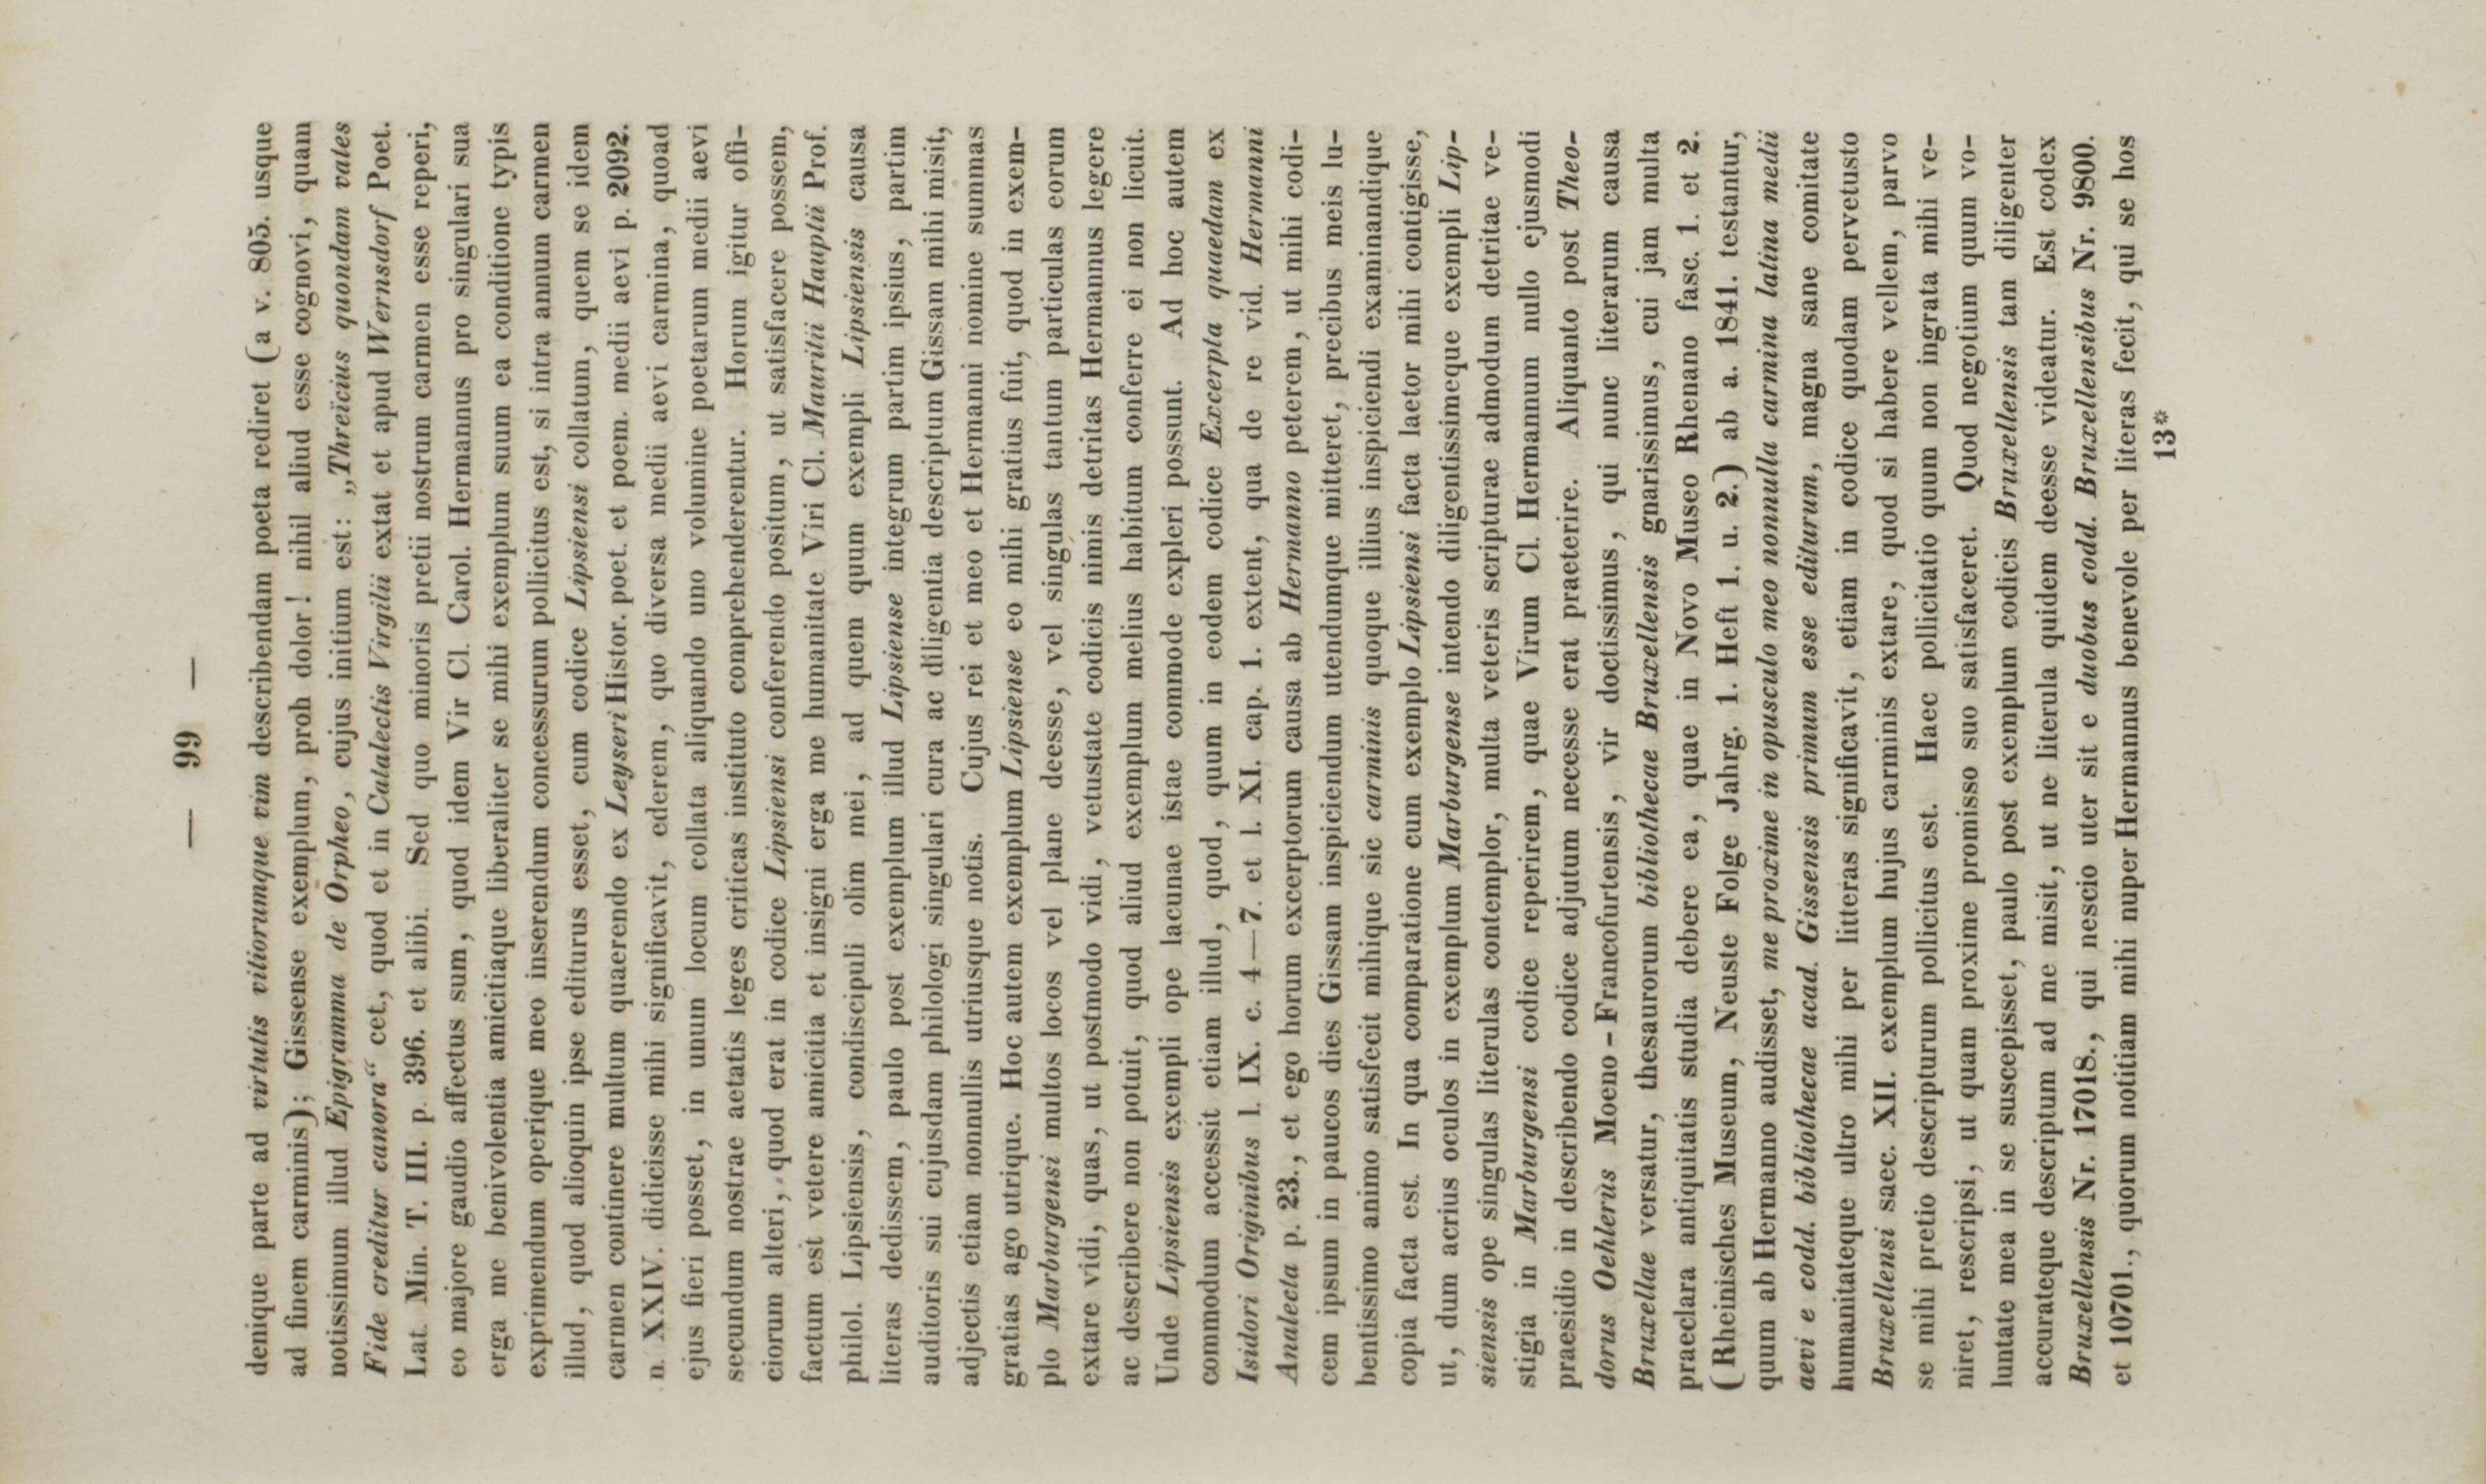 — 99 —
denique parte ad virtutis vitiorumque vim describendam poeta rediret (a v. 805. usque
ad finem carminis); Gissense exemplum, proh dolor! nihil aliud esse cognovi, quam
notissimum illud Epigramma de Orpheo, cujus initium est: „Threïcius quondam vates
Fide creditur canora“ cet., quod et in Catalectis Virgilii extat et apud Wernsdorf Poet.
Lat. Min. T. III. p. 396. et alibi. Sed quo minoris pretii nostrum carmen esse reperi,
eo majore gaudio affectus sum, quod idem Vir Cl. Carol. Hermannus pro singulari sua
erga me benivolentia amicitiaque liberaliter se mihi exemplum suum ea conditione typis
exprimendum operique meo inserendum concessurum pollicitus est, si intra annum carmen
illud, quod alioquin ipse editurus esset, cum codice Lipsiensi collatum, quem se idem
carmen continere multum quaerendo ex Leyseri Histor. poet. et poem. medii aevi p. 2092.
n. XXIV. didicisse mihi significavit, ederem, quo diversa medii aevi carmina, quoad
ejus fieri posset, in unum locum collata aliquando uno volumine poetarum medii aevi
secundum nostrae aetatis leges criticas instituto comprehenderentur. Horum igitur offi-
ciorum alteri, quod erat in codice Lipsiensi conferendo positum, ut satisfacere possem,
factum est vetere amicitia et insigni erga me humanitate Viri Cl. Mauritii Hauptii Prof.
philol. Lipsiensis, condiscipuli olim mei, ad quem quum exempli Lipsiensis causa
literas dedissem, paulo post exemplum illud Lipsiense integrum partim ipsius, partim
auditoris sui cujusdam philologi singulari cura ac diligentia descriptum Gissam mihi misit,
adjectis etiam nonnullis utriusque notis. Cujus rei et meo et Hermanni nomine summas
gratias ago utrique. Hoc autem exemplum Lipsiense eo mihi gratius fuit, quod in exem-
plo Marburgensi multos locos vel plane deesse, vel singulas tantum particulas eorum
extare vidi, quas, ut postmodo vidi, vetustate codicis nimis detritas Hermannus legere
ac describere non potuit, quod aliud exemplum melius habitum conferre ei non licuit.
Unde Lipsiensis exempli ope lacunae istae commode expleri possunt. Ad hoc autem
commodum accessit etiam illud, quod, quum in eodem codice Excerpta quaedam ex
Isidori Originibus l. IX. c. 4—7. et l. XI. cap. 1. extent, qua de re vid. Hermanni
Analecta p. 23., et ego horum excerptorum causa ab Hermanno peterem, ut mihi codi-
cem ipsum in paucos dies Gissam inspiciendum utendumque mitteret, precibus meis lu-
bentissimo animo satisfecit mihique sic carminis quoque illius inspiciendi examinandique
copia facta est. In qua comparatione cum exemplo Lipsiensi facta laetor mihi contigisse,
ut, dum acrius oculos in exemplum Marburgense intendo diligentissimeque exempli Lip-
siensis ope singulas literulas contemplor, multa veteris scripturae admodum detritae ve-
stigia in Marburgensi codice reperirem, quae Virum Cl. Hermannum nullo ejusmodi
praesidio in describendo codice adjutum necesse erat praeterire. Aliquanto post Theo-
dorus Oehlerus Moeno-Francofurtensis, vir doctissimus, qui nunc literarum causa
Bruxellae versatur, thesaurorum bibliothecae Bruxellensis gnarissimus, cui jam multa
praeclara antiquitatis studia debere ea, quae in Novo Museo Rhenano fasc. 1. et 2.
(Rheinisches Museum, Neuste Folge Jahrg. 1. Heft 1. u. 2.) ab a. 1841. testantur,
quum ab Hermanno audisset, me proxime in opusculo meo nonnulla carmina latina medii
aevi e codd. bibliothecae acad. Gissensis primum esse editurum, magna sane comitate
humanitateque ultro mihi per litteras significavit, etiam in codice quodam pervetusto
Bruxellensi saec. XII. exemplum hujus carminis extare, quod si habere vellem, parvo
se mihi pretio descripturum pollicitus est. Haec pollicitatio quum non ingrata mihi ve-
niret, rescripsi, ut quam proxime promisso suo satisfaceret. Quod negotium quum vo-
luntate mea in se suscepisset, paulo post exemplum codicis Bruxellensis tam diligenter
accurateque descriptum ad me misit, ut ne literula quidem deesse videatur. Est codex
Bruxellensis Nr. 17018., qui nescio uter sit e duobus codd. Bruxellensibus Nr. 9800.
et 10701., quorum notitiam mihi nuper Hermannus benevole per literas fecit, qui se hos
13*